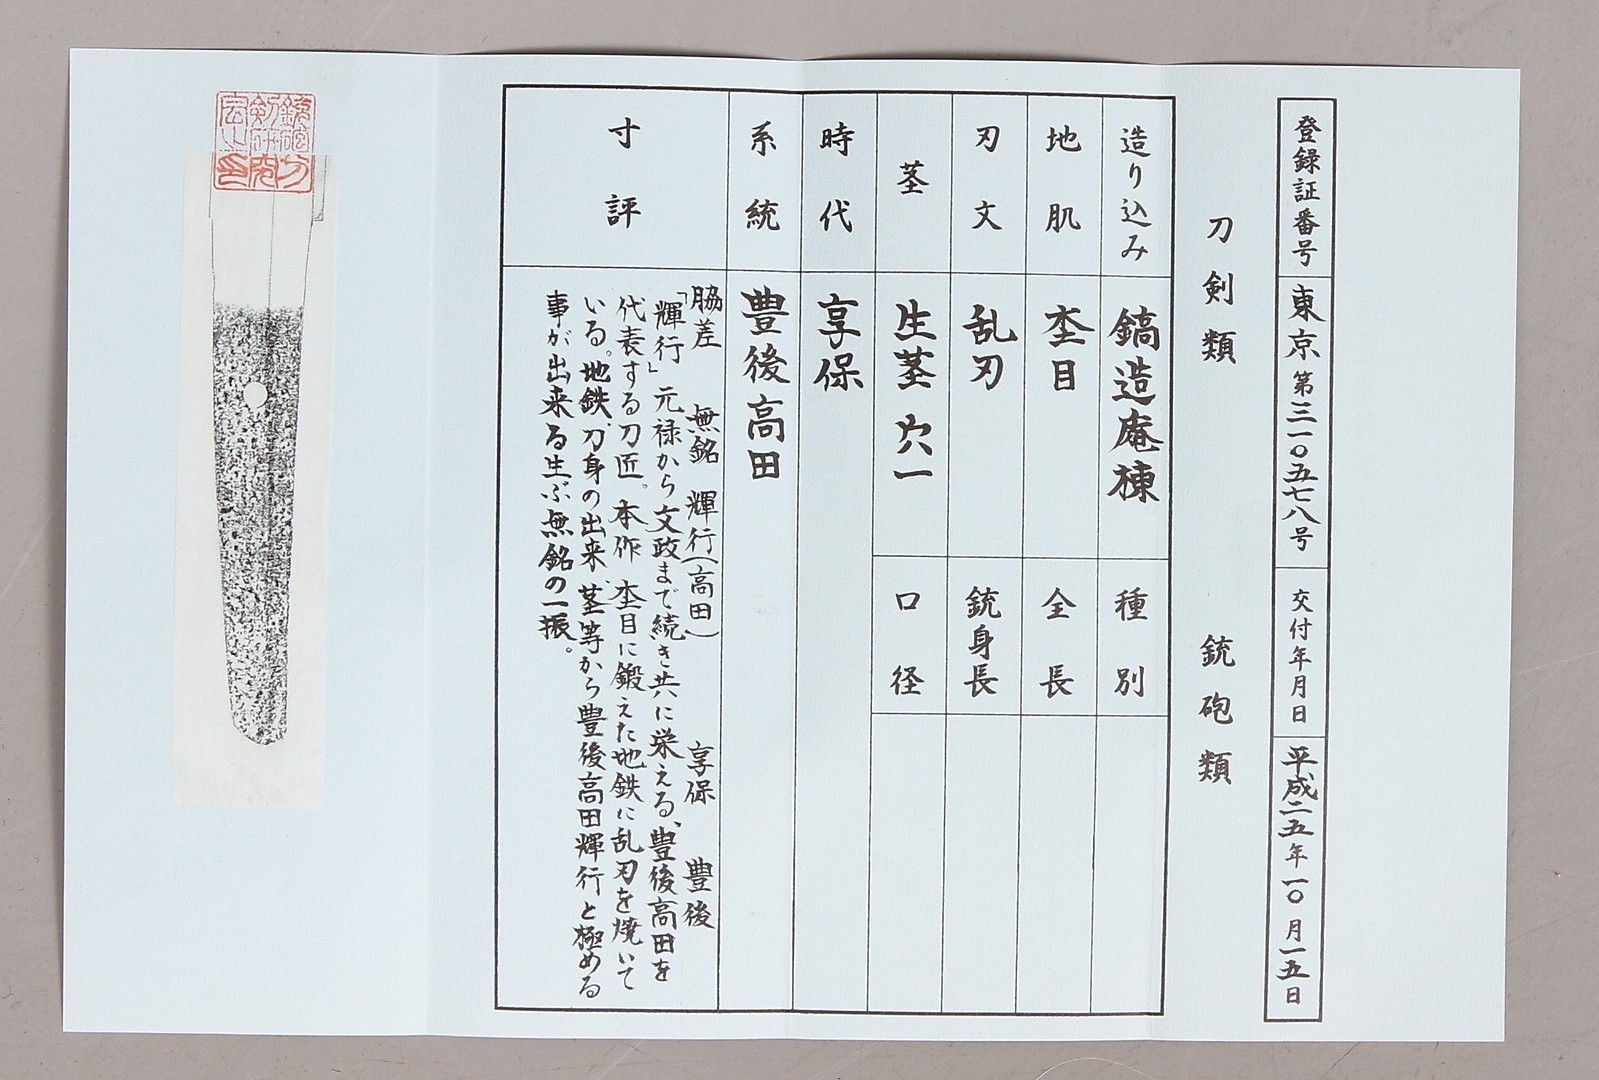 登録証番号 東京第三一〇五七八号 交付年月日 平成二五年一〇月一五日
刀剣類 銃砲類
造り込み 鎬造庵棟 種別
地肌 杢目 全長
刃文 乱刃 銃身長
茎 生茎 穴一 口径
時代 享保
系統 豊後高田
寸評
脇差 無銘 輝行(高田) 享保 豊後
「輝行」元禄から文政まで続き共に栄える、豊後高田を
代表する刀匠。本作 杢目に鍛えた地鉄に乱刃を焼いて
いる。地鉄、刀身の出来、茎等から豊後高田輝行と極める
事が出来る生ぶ無銘の一振。